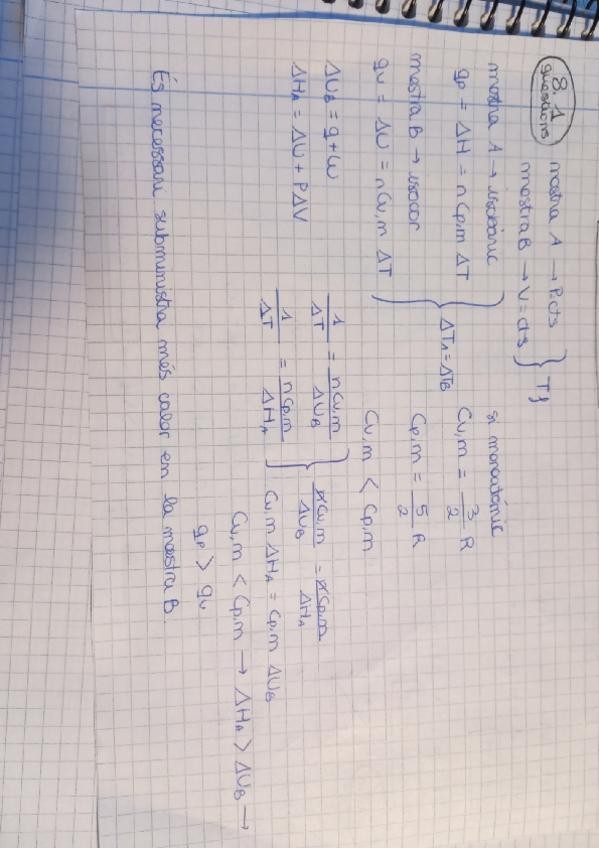 8.1
qüestions
mostra A → P.cts
mostra B → V = cts } Tf
mostra A → isobàric
qp = ΔH = n Cp,m ΔT
mostra B → isocor
qv = ΔU = n Cv,m ΔT
ΔT_A = ΔT_B
si monoatòmic
Cv,m = 3/2 R
Cp,m = 5/2 R
Cv,m < Cp,m
ΔU_B = q + w
ΔH_A = ΔU + PΔV
1/ΔT = n Cv,m / ΔU_B
1/ΔT = n Cp,m / ΔH_A
n Cv,m / ΔU_B = n Cp,m / ΔH_A
Cv,m ΔH_A = Cp,m ΔU_B
Cv,m < Cp,m → ΔH_A > ΔU_B →
qp > qv
És necessari subministra més calor en la mostra B.